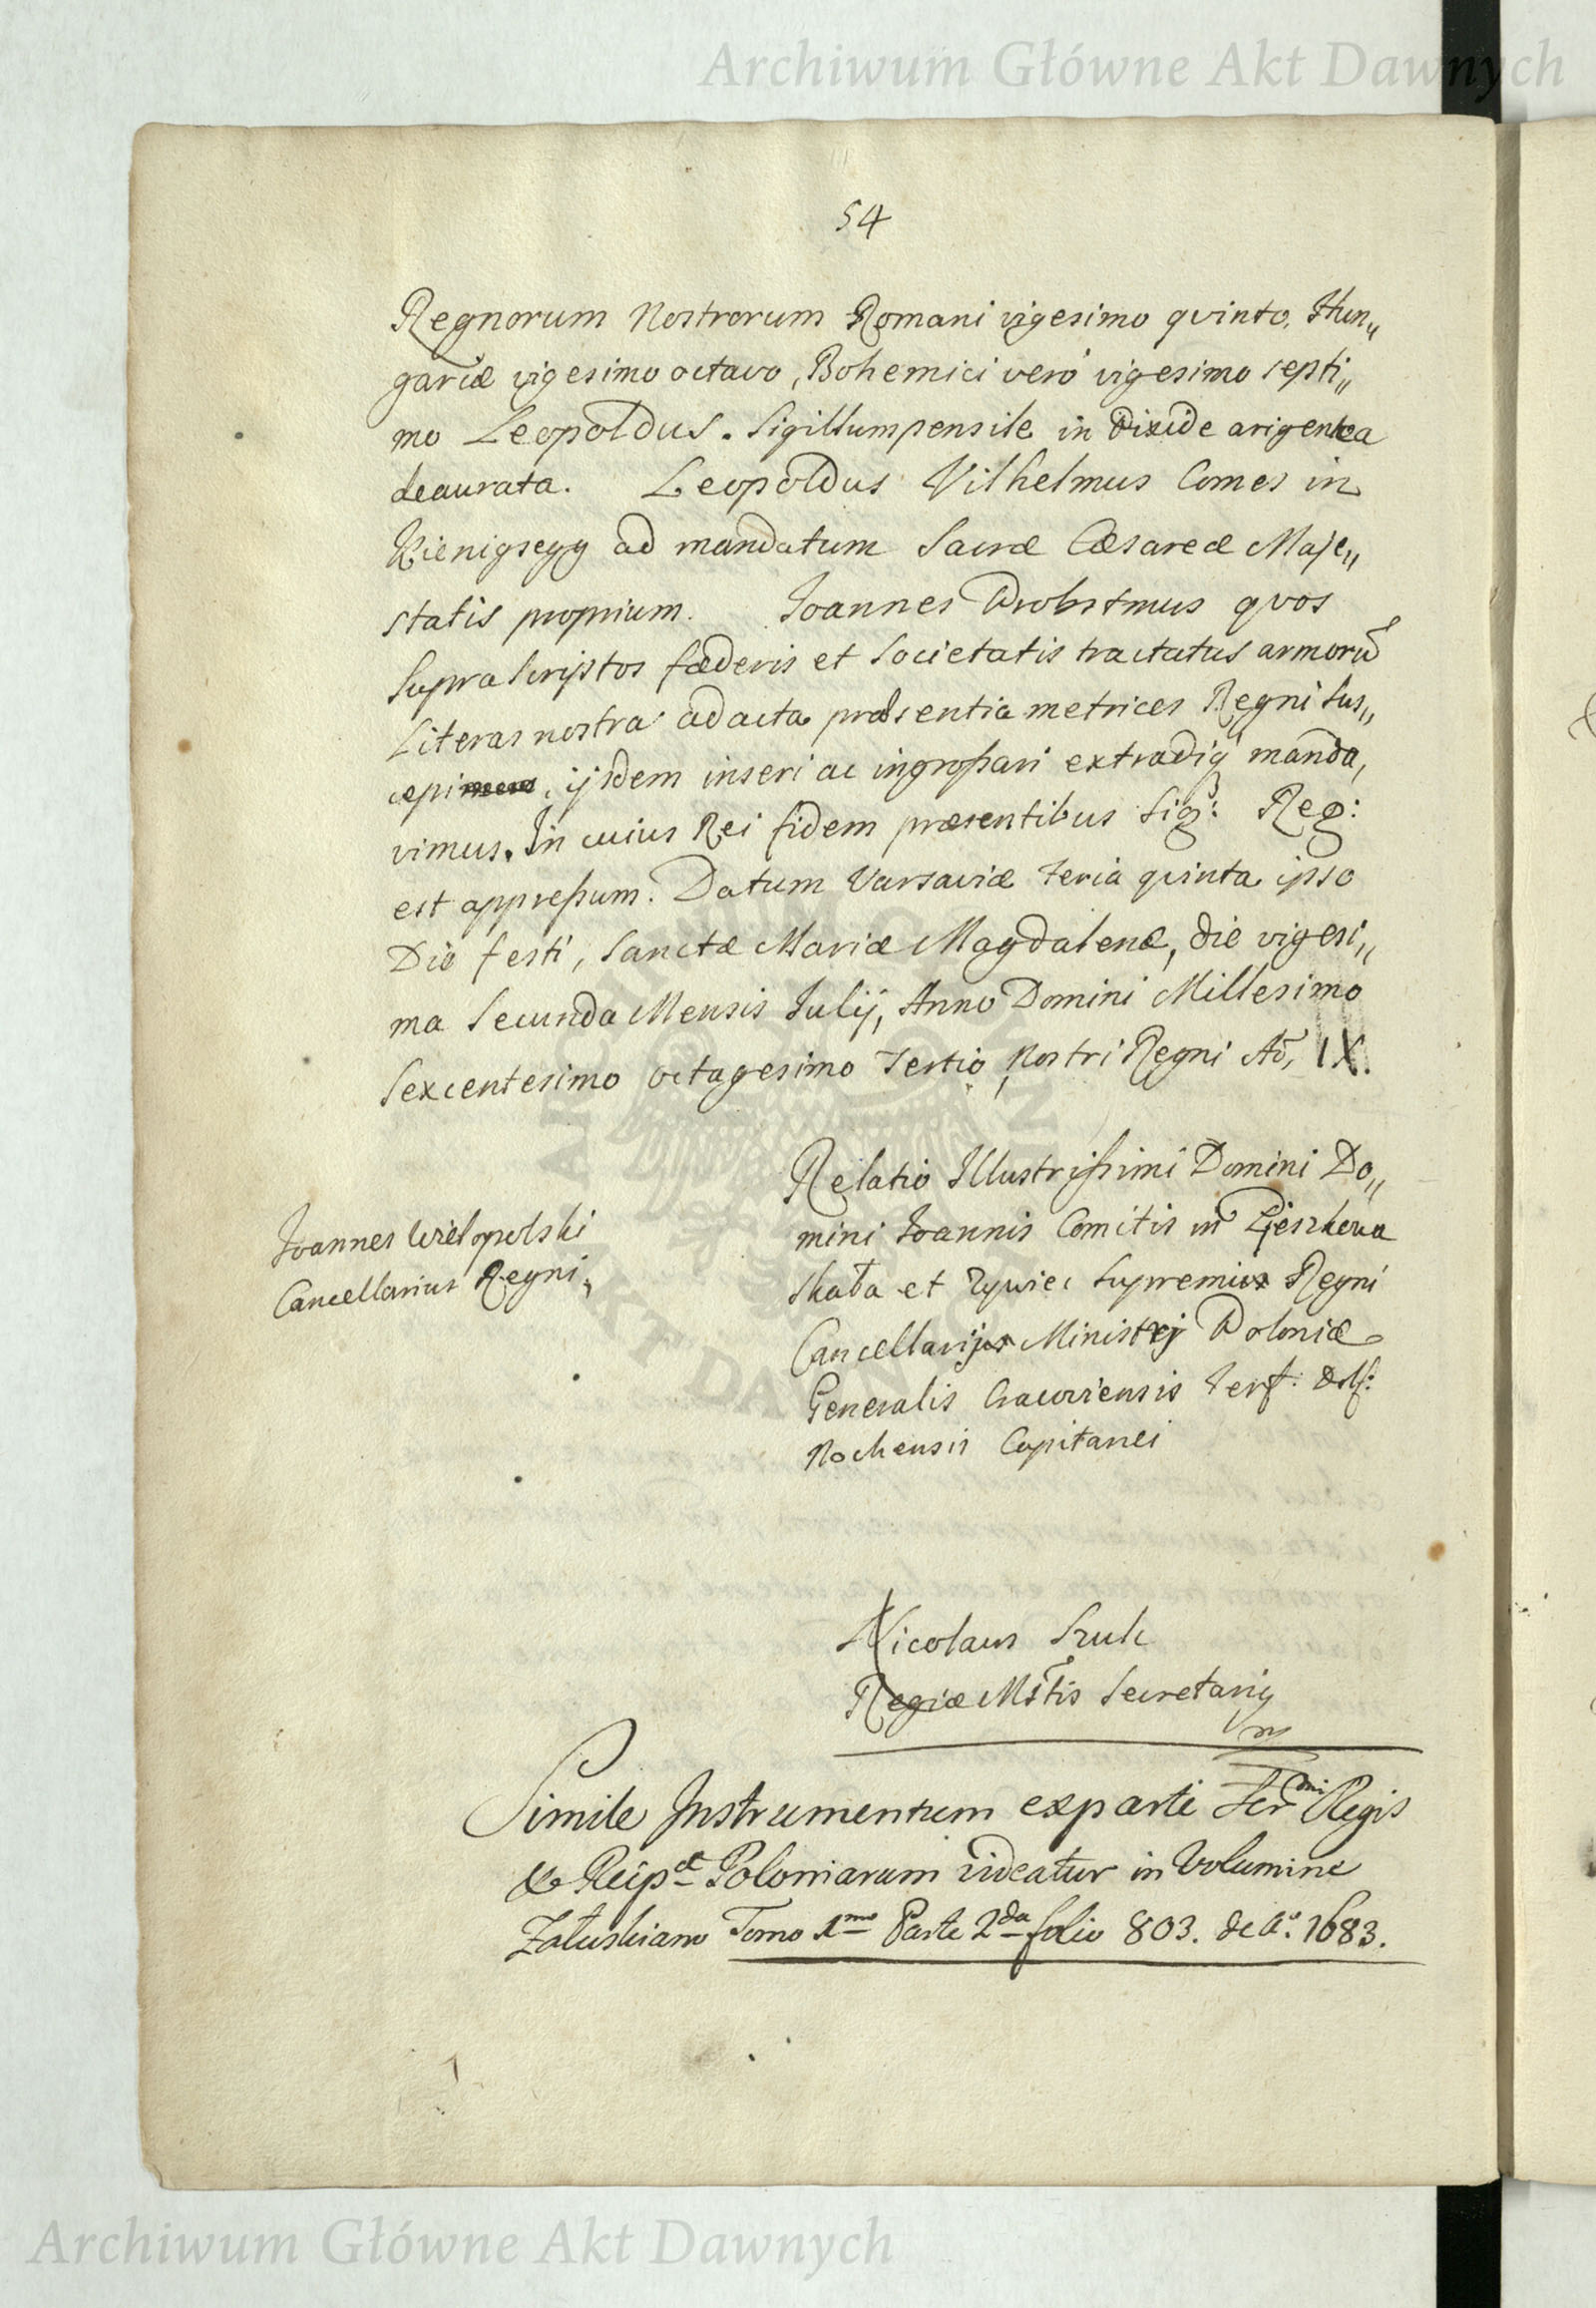 Archiwum Główne Akt Dawnych
54
Regnorum Nostrorum Romani vigesimo qvinto, Hun„
gariæ vigesimo octavo, Bohemici veró vigesimo septi„
mo Leopoldus. Sigillum pensile in Pixide arigentea
deaurata. Leopoldus Vilhelmus Comes in
Kienigsegg ad mandatum Sacræ Cæsareæ Maje„
statis proprium. Joannes Probstmus qvos
suprascriptos fæderis et Societatis tractatus armorū
Literas nostra ad acta præsentia metrices Regni sus„
cepi, ijsdem inseri ac ingrossari extradiq manda,
vimus. In cuius Rei fidem præsentibus Sig: Reg:
est appressum. Datum Varsaviæ feria qvinta ipso
Die festi, Sanctæ Mariæ Magdalenæ, die vigesi„
ma Secunda Mensis Julij, Anno Domini Millesimo
Sexcentesimo octagesimo Tertio Nostri Regni Aō, IX.
Relatio Illustrissimi Domini Do„
mini Joannis Comitis in Pieskowa
Skała et Zywiec Supremi Regni
Cancellarij Ministrj Poloniæ
Generalis Cracoviensis
Nochensis Capitanei
Joannes Wielopolski
Cancellarius Regni
Nicolaus Szulc
Regiæ Mītis Secretariq
mp
Simile Instrumentum ex parte Ser dmi Regis
& Reip Poloniarum videatur in Volumine
Załuskiano Tomo 1mo Parte 2da folio 803. de Ao. 1683.
ARCHIWUM GŁÓWNE AKT DAWNYCH
Archiwum Główne Akt Dawnych